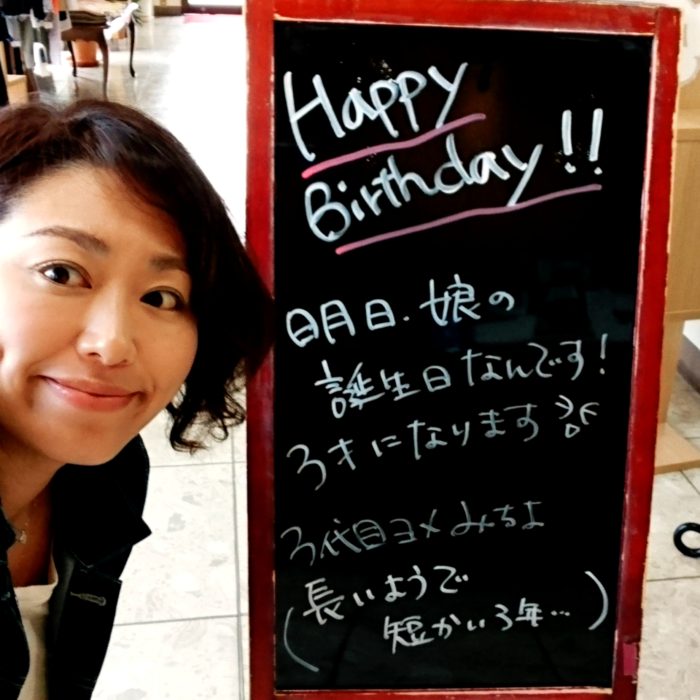 Happy
Birthday!!
明日.娘の
誕生日なんです!
3才になります
3代目ヨメみちよ
(長いようで
短かい3年…)